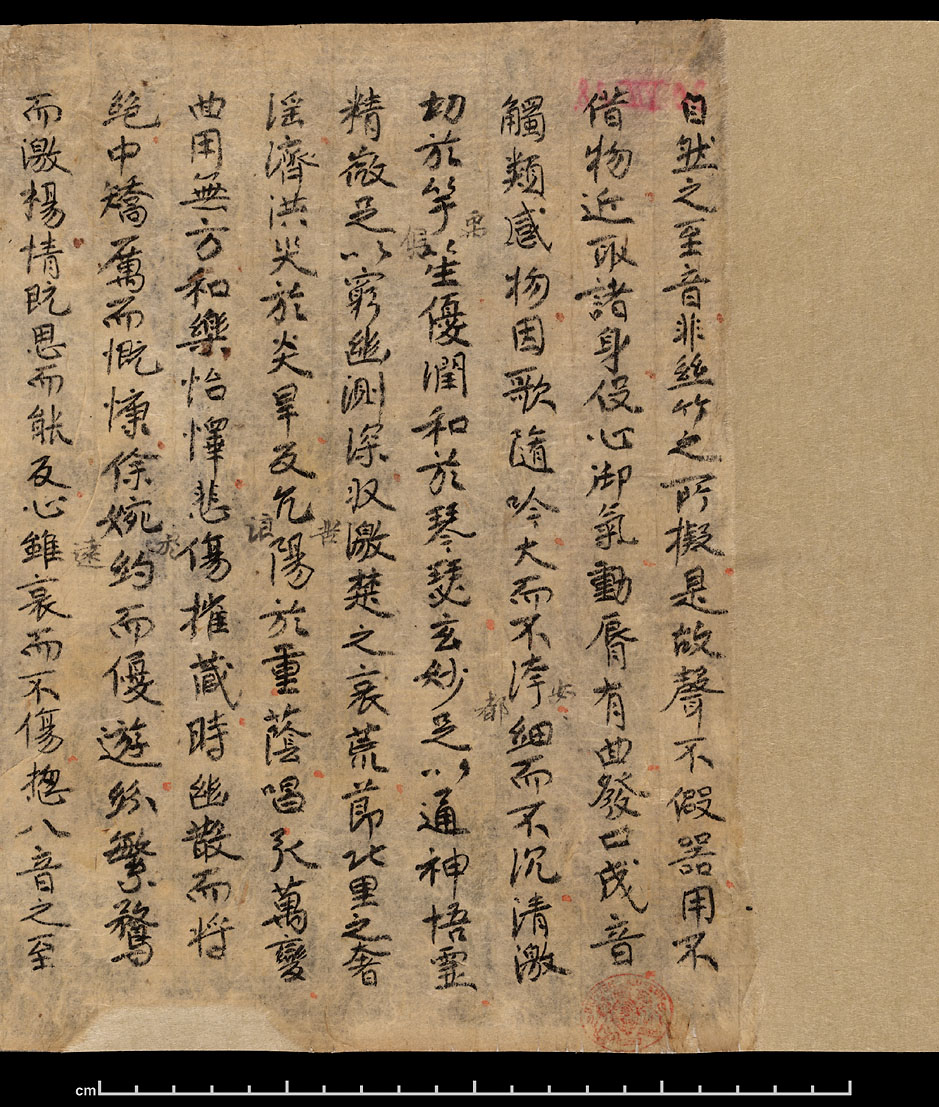 自然之至音非絲竹之所擬是故聲不假器用不
借物近取諸身伇心御氣動脣有曲發口成音
觸類感物因歌隨吟大而不洿細而不沉清激
切於竽笙優潤和於琴瑟玄妙足以通神悟靈
精微足以窮幽測深收激楚之哀荒莭北里之奢
滛濟洪灾於炎旱反亢陽於重蔭唱引萬變
曲用無方和樂怡懌悲傷摧藏時幽散而將
絕中矯厲而慨慷徐婉約而優遊紛繁騖
而激楊情旣思而能反心雖哀而不傷揔八音之至